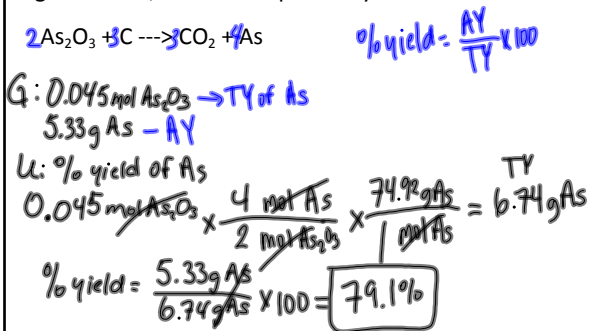 2As₂O₃ +3C --->3CO₂ +4As
% yield = AY/TY x 100
G: 0.045 mol As₂O₃ → TY of As
5.33g As - AY
U: % yield of As
0.045 mol As₂O₃ x 4 mol As/2 mol As₂O₃ x 74.92g As/1 mol As = 6.74g As TY
% yield = 5.33g As/6.74g As x 100 = 79.1%